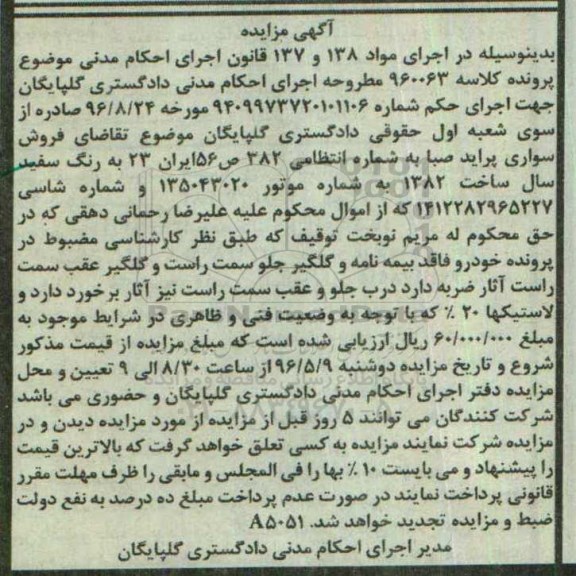 آگهی مزایده
بدینوسیله در اجرای مواد ۱۳۸ و ۱۳۷ قانون اجرای احکام مدنی موضوع
پرونده کلاسه ۹۶۰۰۶۳ مطروحه اجرای احکام مدنی دادگستری گلپایگان
جهت اجرای حکم شماره ۹۴۰۹۹۷۳۷۲۰۱۰۱۱۰۶ مورخه ۹۶/۸/۲۴ صادره از
سوی شعبه اول حقوقی دادگستری گلپایگان موضوع تقاضای فروش
سواری پراید صبا به شماره انتظامی ۳۸۲ ص۵۶ایران ۲۳ به رنگ سفید
سال ساخت ۱۳۸۲ به شماره موتور ۱۳۵۰۴۳۰۲۰ و شماره شاسی
۱۴۱۲۲۸۲۹۶۵۲۲۷ که از اموال محکوم علیه علیرضا رحمانی دهقی که در
حق محکوم له مریم نوبخت توقیف که طبق نظر کارشناسی مضبوط در
پرونده خودرو فاقد بیمه نامه و گلگیر جلو سمت راست و گلگیر عقب سمت
راست آثار ضربه دارد درب جلو و عقب سمت راست نیز آثار برخورد دارد و
لاستیکها ۲۰ ٪ که با توجه به وضعیت فنی و ظاهری در شرایط موجود به
مبلغ ۶۰/۰۰۰/۰۰۰ ریال ارزیابی شده است که مبلغ مزایده از قیمت مذکور
شروع و تاریخ مزایده دوشنبه ۹۶/۵/۹ از ساعت ۸/۳۰ الی ۹ تعیین و محل
مزایده دفتر اجرای احکام مدنی دادگستری گلپایگان و حضوری می باشد
شرکت کنندگان می توانند ۵ روز قبل از مزایده از مورد مزایده دیدن و در
مزایده شرکت نمایند مزایده به کسی تعلق خواهد گرفت که بالاترین قیمت
را پیشنهاد و می بایست ۱۰ ٪ بها را فی المجلس و مابقی را ظرف مهلت مقرر
قانونی پرداخت نمایند در صورت عدم پرداخت مبلغ ده درصد به نفع دولت
ضبط و مزایده تجدید خواهد شد. A۵۰۵۱
مدیر اجرای احکام مدنی دادگستری گلپایگان